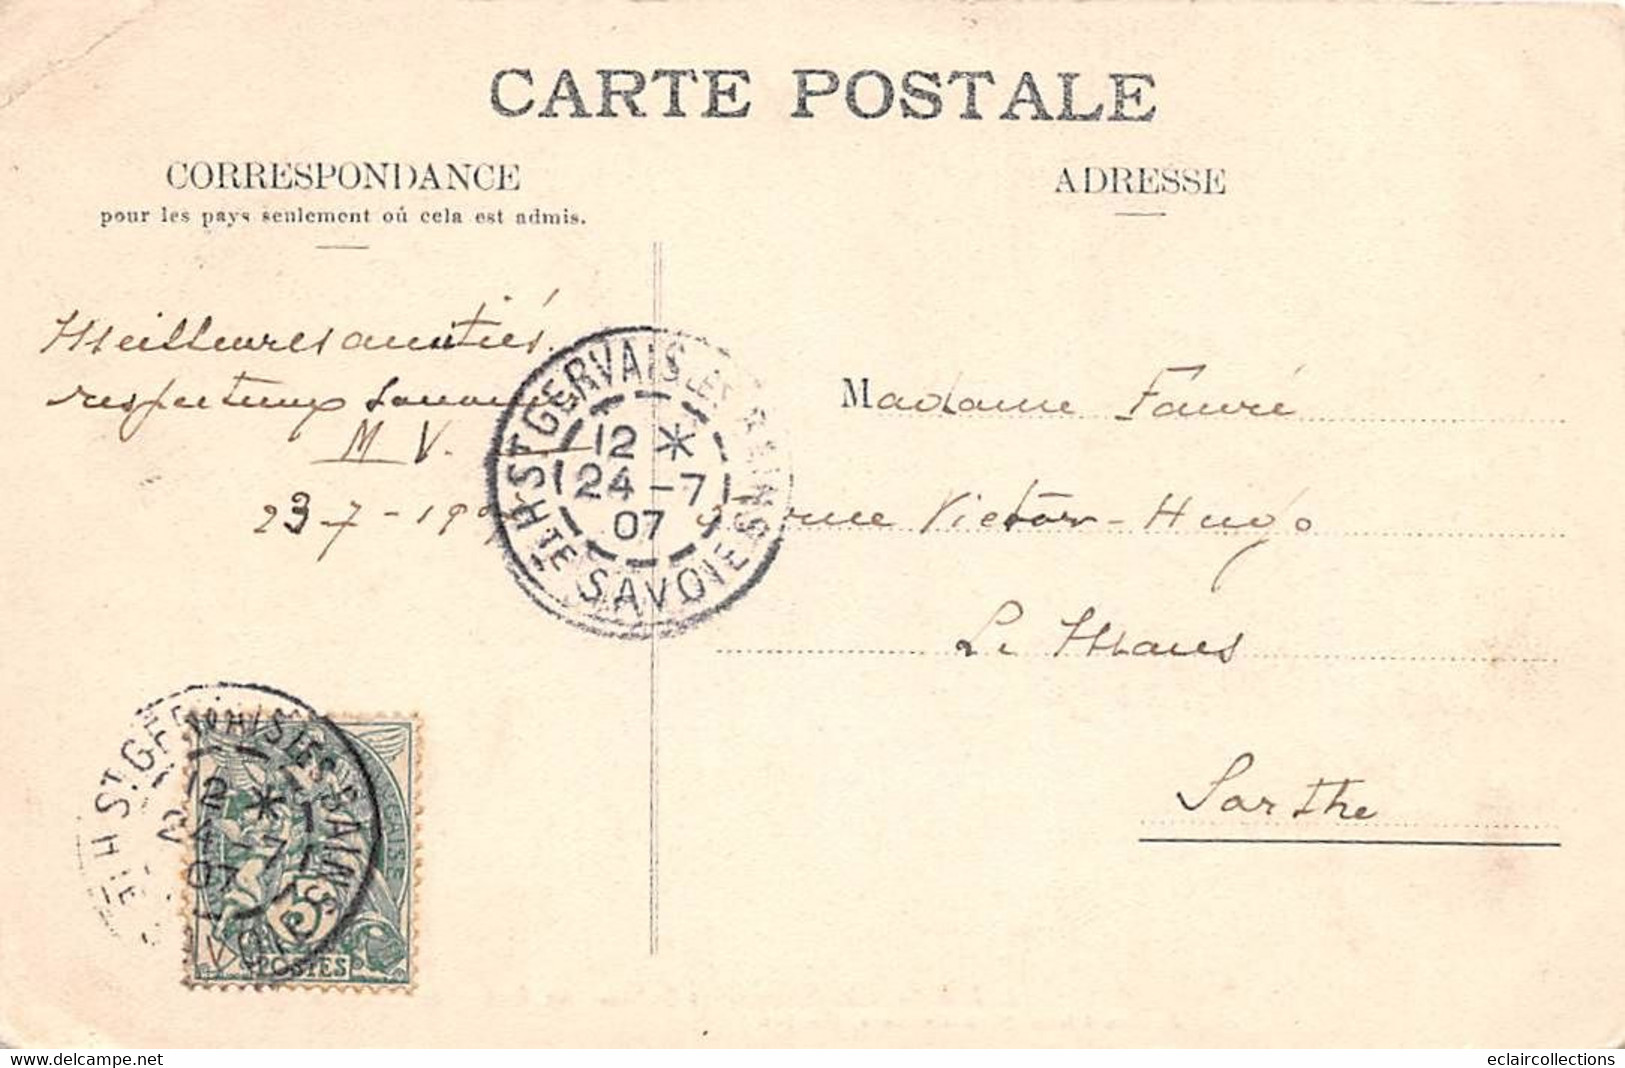 CARTE POSTALE
CORRESPONDANCE
pour les pays seulement où cela est admis.
ADRESSE
Meilleures amitiés.
respectueux
M V.
23-7-190
ST GERVAIS LES BAINS
12 *
24-7
07
HTE SAVOIE
Madame Fauré
rue Victor-Hugo
Le Mans
Sarthe
ST GERVAIS LES BAINS
12 *
24-7
07
HTE SAVOIE
5
POSTES
www.delcampe.net
eclaircollections